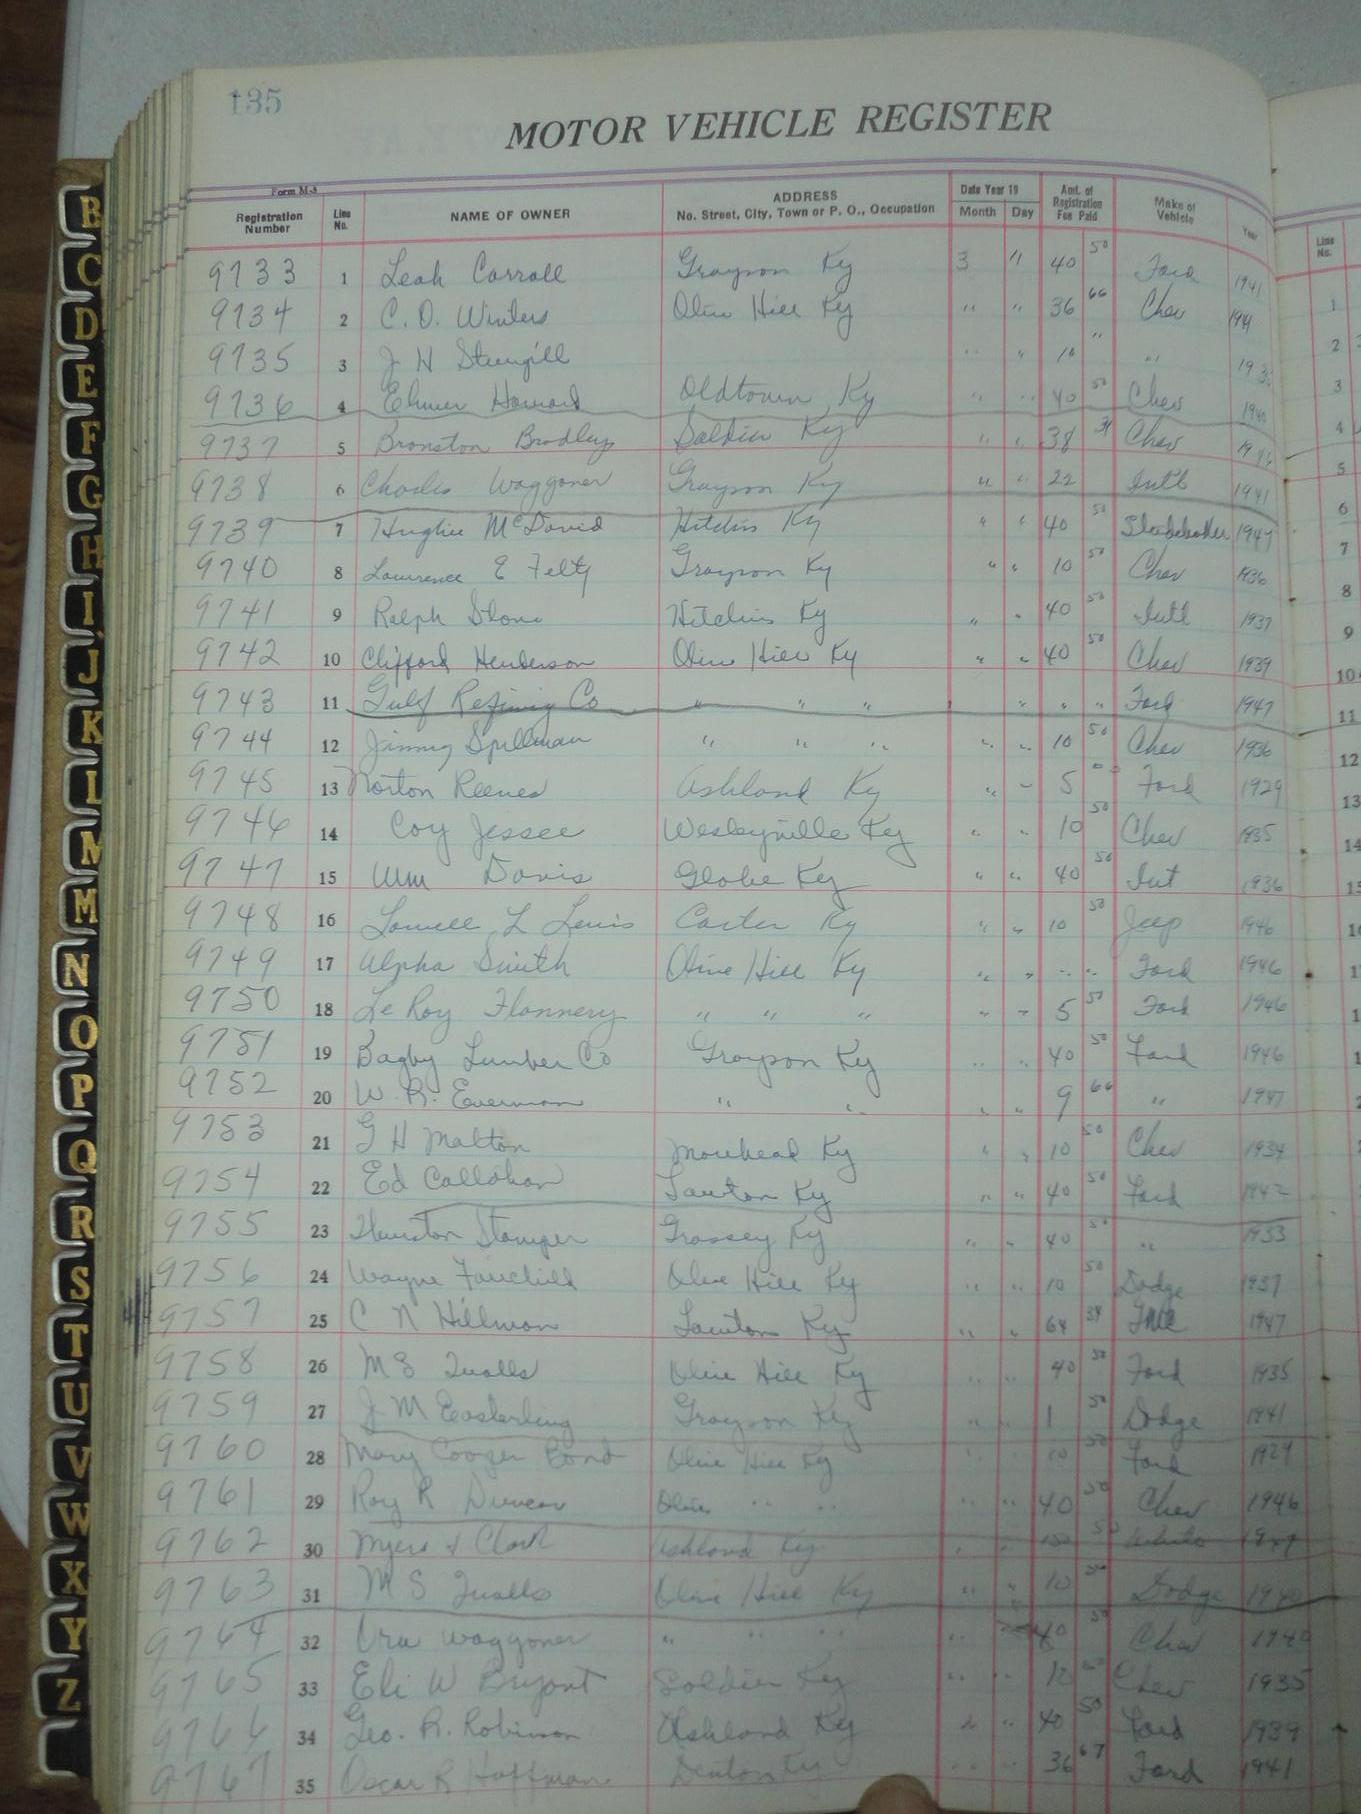 135
MOTOR VEHICLE REGISTER
Form M-3
Registration Number Line No. NAME OF OWNER ADDRESS No. Street, City, Town or P. O., Occupation Date Year 19 Month Day Amt. of Registration Fee Paid Make of Vehicle Year
9733 1 Leah Carroll Grayson Ky 3 11 40 50 Ford 1941
9734 2 C. O. Winters Olive Hill Ky " " 36 66 Chev 1941
9735 3 J H Sturgill " " 10 " "
9736 4 Elmer Howard Oldtown Ky " " 40 50 Chev 1940
9737 5 Bronston Bradley Soldier Ky " " 38 Chev
9738 6 Charles Waggoner Grayson Ky " " 22 Intl 1941
9739 7 Hughie McDavid Hitchins Ky " " 40 50 Studebaker 1947
9740 8 Lawrence E Felty Grayson Ky " " 10 50 Chev 1936
9741 9 Ralph Stone Hitchins Ky " " 40 50 Intl 1937
9742 10 Clifford Henderson Olive Hill Ky " " 40 50 Chev 1939
9743 11 Gulf Refining Co " " " " " " Ford 1947
9744 12 Jimmy Spillman " " " " " 10 50 Chev 1936
9745 13 Norton Reeves Ashland Ky " " 5 00 Ford 1929
9746 14 Coy Jessee Wesleyville Ky " " 10 50 Chev 1935
9747 15 Wm Davis Globe Ky " " 40 50 Int 1936
9748 16 Lowell L Lewis Carter Ky " " 10 50 Jeep 1946
9749 17 Alpha Smith Olive Hill Ky " " " " Ford 1946
9750 18 LeRoy Flannery " " " " " 5 50 Ford 1946
9751 19 Bagby Lumber Co Grayson Ky " " 40 50 Ford 1946
9752 20 W. R. Everman " " " " 9 66 " 1947
9753 21 G H Malton Morehead Ky " " 10 50 Chev 1934
9754 22 Ed Callahan Lawton Ky " " 40 50 Ford 1942
9755 23 Thurston Stamper Grassey Ky " " 40 50 " 1933
9756 24 Wayne Fairchild Olive Hill Ky " " 10 50 Dodge 1937
9757 25 C N Hillman Lawton Ky " " 64 1947
9758 26 M S Qualls Olive Hill Ky " " 40 50 Ford 1935
9759 27 J M Easterling Grayson Ky " " 1 50 Dodge 1941
9760 28 Mary Cooper Bond Olive Hill Ky " " 10 50 Ford 1929
9761 29 Roy R Duncan Olive " " " " 40 50 Chev 1946
9762 30 Myers & Clark Ashland Ky " " 50 White
9763 31 M S Qualls Olive Hill Ky " " 10 50 Dodge 1940
9764 32 Ora Waggoner " " " " 40 50 Chev 1940
9765 33 Eli W Bryant Soldier Ky " " 10 50 Chev 1935
9766 34 Geo. R. Robinson Ashland Ky " " 40 50 Ford 1939
9767 35 Oscar R Huffman Denton Ky " " 36 67 Ford 1941
B
C
D
E
F
G
H
I
J
K
L
M
M
N
O
P
Q
R
S
T
U
V
W
X
Y
Z
Line No.
1
2
3
4
5
6
7
8
9
10
11
12
13
14